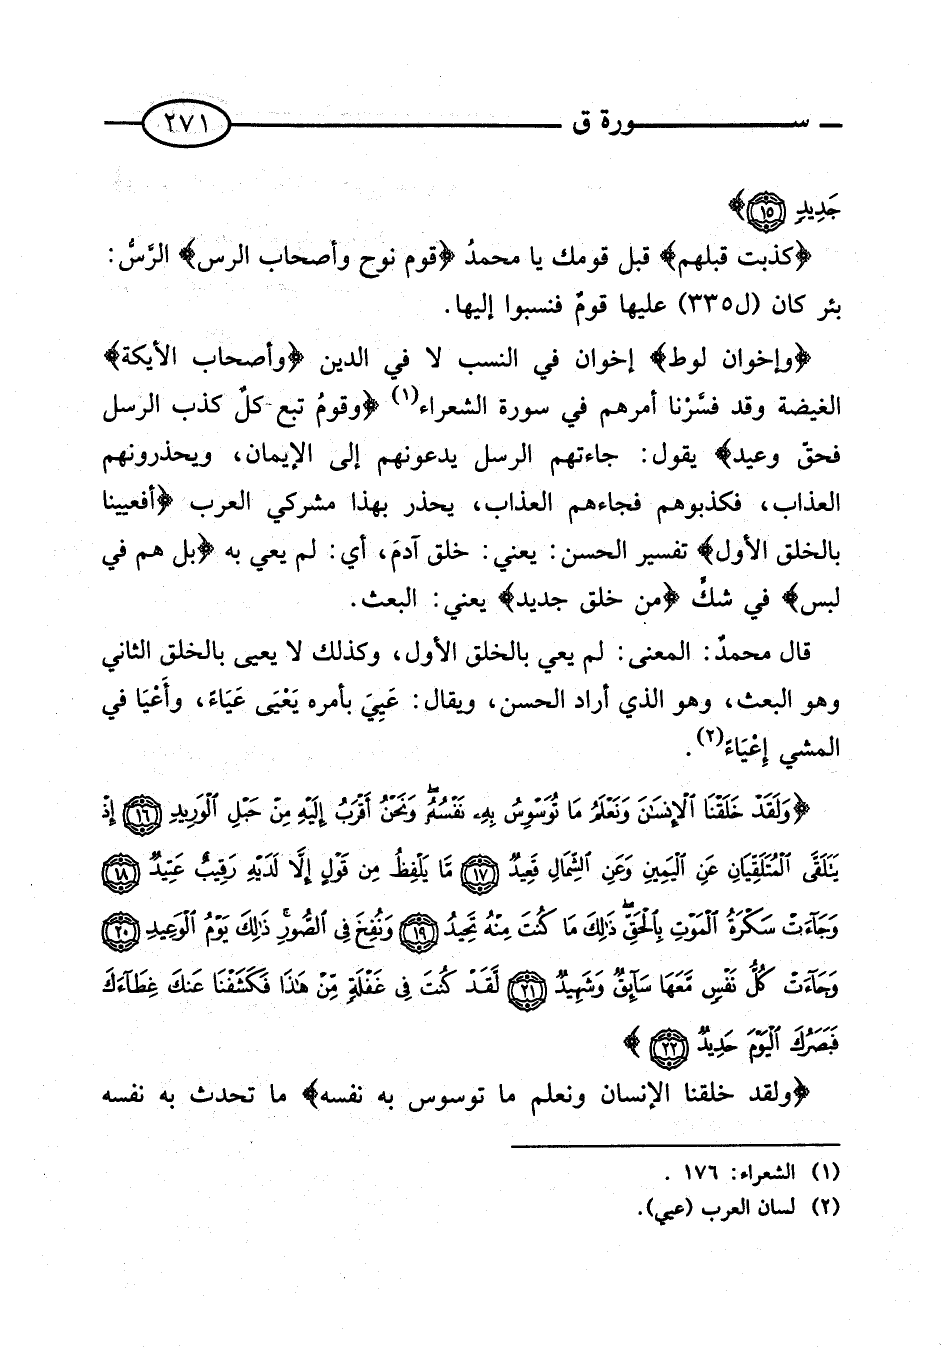 سـورة ق ٢٧١
جَدِيدٍ ﴿١٥﴾﴾
﴿كذبت قبلهم﴾ قبل قومك يا محمدُ ﴿قوم نوح وأصحاب الرس﴾ الرَّسُّ:
بئر كان (ل٣٣٥) عليها قومٌ فنسبوا إليها.
﴿وإخوان لوط﴾ إخوان في النسب لا في الدين ﴿وأصحاب الأيكة﴾
الغيضة وقد فسَّرْنا أمرهم في سورة الشعراء(١) ﴿وقومُ تبع كلٌ كذب الرسل
فحقّ وعيد﴾ يقول: جاءتهم الرسل يدعونهم إلى الإيمان، ويحذرونهم
العذاب، فكذبوهم فجاءهم العذاب، يحذر بهذا مشركي العرب ﴿أفعيينا
بالخلق الأول﴾ تفسير الحسن: يعني: خلق آدمَ، أي: لم يعي به ﴿بل هم في
لبس﴾ في شكٍّ ﴿من خلق جديد﴾ يعني: البعث.
قال محمدٌ: المعنى: لم يعي بالخلق الأول، وكذلك لا يعيى بالخلق الثاني
وهو البعث، وهو الذي أراد الحسن، ويقال: عَيِيَ بأمره يَعْيَى عَيَاءً، وأَعْيَا في
المشي إِعْيَاءً(٢).
﴿وَلَقَدْ خَلَقْنَا ٱلْإِنسَٰنَ وَنَعْلَمُ مَا تُوَسْوِسُ بِهِۦ نَفْسُهُۥ ۖ وَنَحْنُ أَقْرَبُ إِلَيْهِ مِنْ حَبْلِ ٱلْوَرِيدِ ﴿١٦﴾ إِذْ
يَتَلَقَّى ٱلْمُتَلَقِّيَانِ عَنِ ٱلْيَمِينِ وَعَنِ ٱلشِّمَالِ قَعِيدٌ ﴿١٧﴾ مَّا يَلْفِظُ مِن قَوْلٍ إِلَّا لَدَيْهِ رَقِيبٌ عَتِيدٌ ﴿١٨﴾
وَجَآءَتْ سَكْرَةُ ٱلْمَوْتِ بِٱلْحَقِّ ۖ ذَٰلِكَ مَا كُنتَ مِنْهُ تَحِيدُ ﴿١٩﴾ وَنُفِخَ فِى ٱلصُّورِ ۚ ذَٰلِكَ يَوْمُ ٱلْوَعِيدِ ﴿٢٠﴾
وَجَآءَتْ كُلُّ نَفْسٍ مَّعَهَا سَآئِقٌ وَشَهِيدٌ ﴿٢١﴾ لَّقَدْ كُنتَ فِى غَفْلَةٍ مِّنْ هَٰذَا فَكَشَفْنَا عَنكَ غِطَآءَكَ
فَبَصَرُكَ ٱلْيَوْمَ حَدِيدٌ ﴿٢٢﴾﴾
﴿ولقد خلقنا الإنسان ونعلم ما توسوس به نفسه﴾ ما تحدث به نفسه
(١) الشعراء: ١٧٦ .
(٢) لسان العرب (عيي).